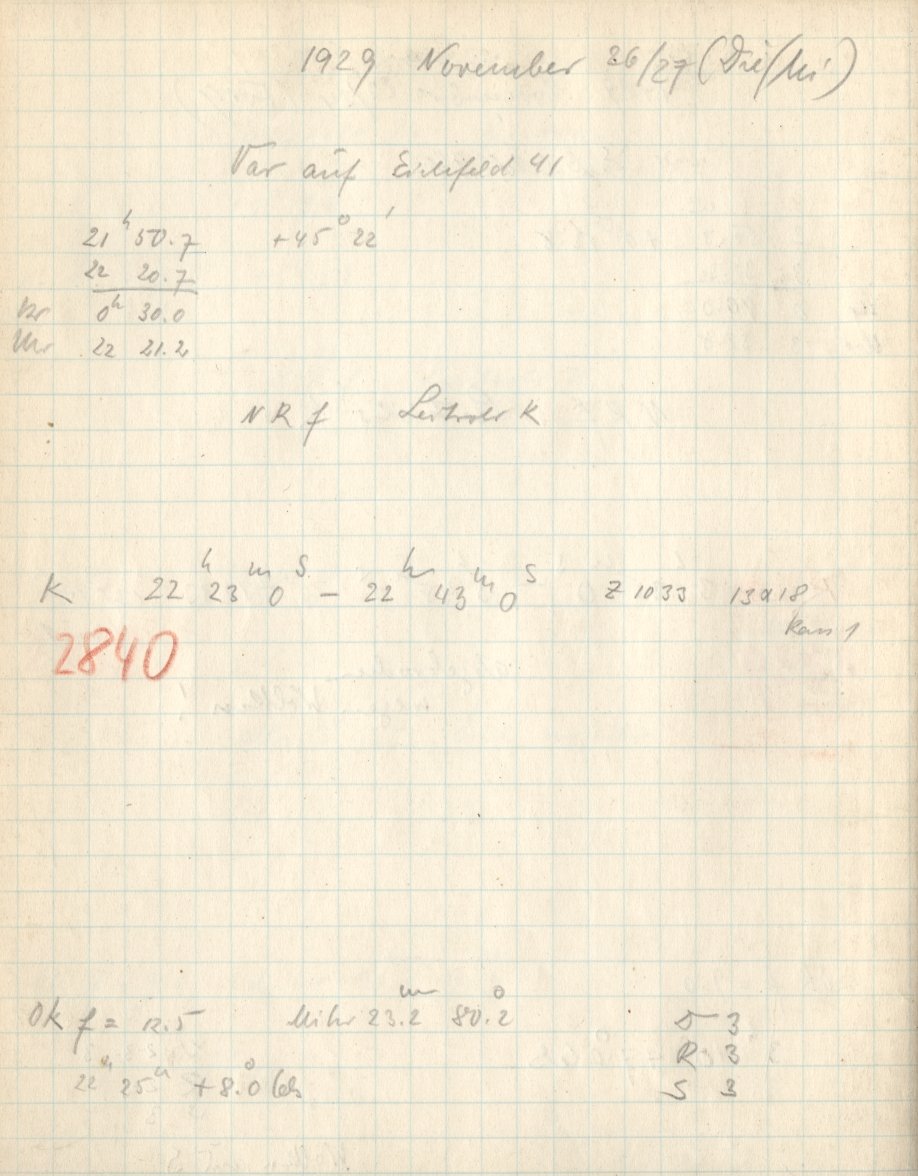 1929 November 26/27 (Die/Mi)
Var auf Eichfeld 41
21ʰ 50.7 +45° 22'
22 20.7
0ʰ 30.0
Uhr 22 21.2
NRf Leitrohr K
K 22ʰ 23ᵐ 0ˢ – 22ʰ 43ᵐ 0ˢ Z 1033 13a18
Kass 1
2840
OK f = 12.5 Mikr 23.2ᵐᵐ 80.°2
22ʰ 25ᵐ +8.°0
D 3
R 3
S 3